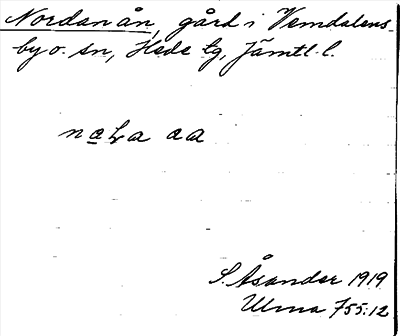 Nordanån, gård i Vemdalens-
by o. sn, Hede tg, Jämtl. l.
S. Åsander 1919
Ulma 755:12